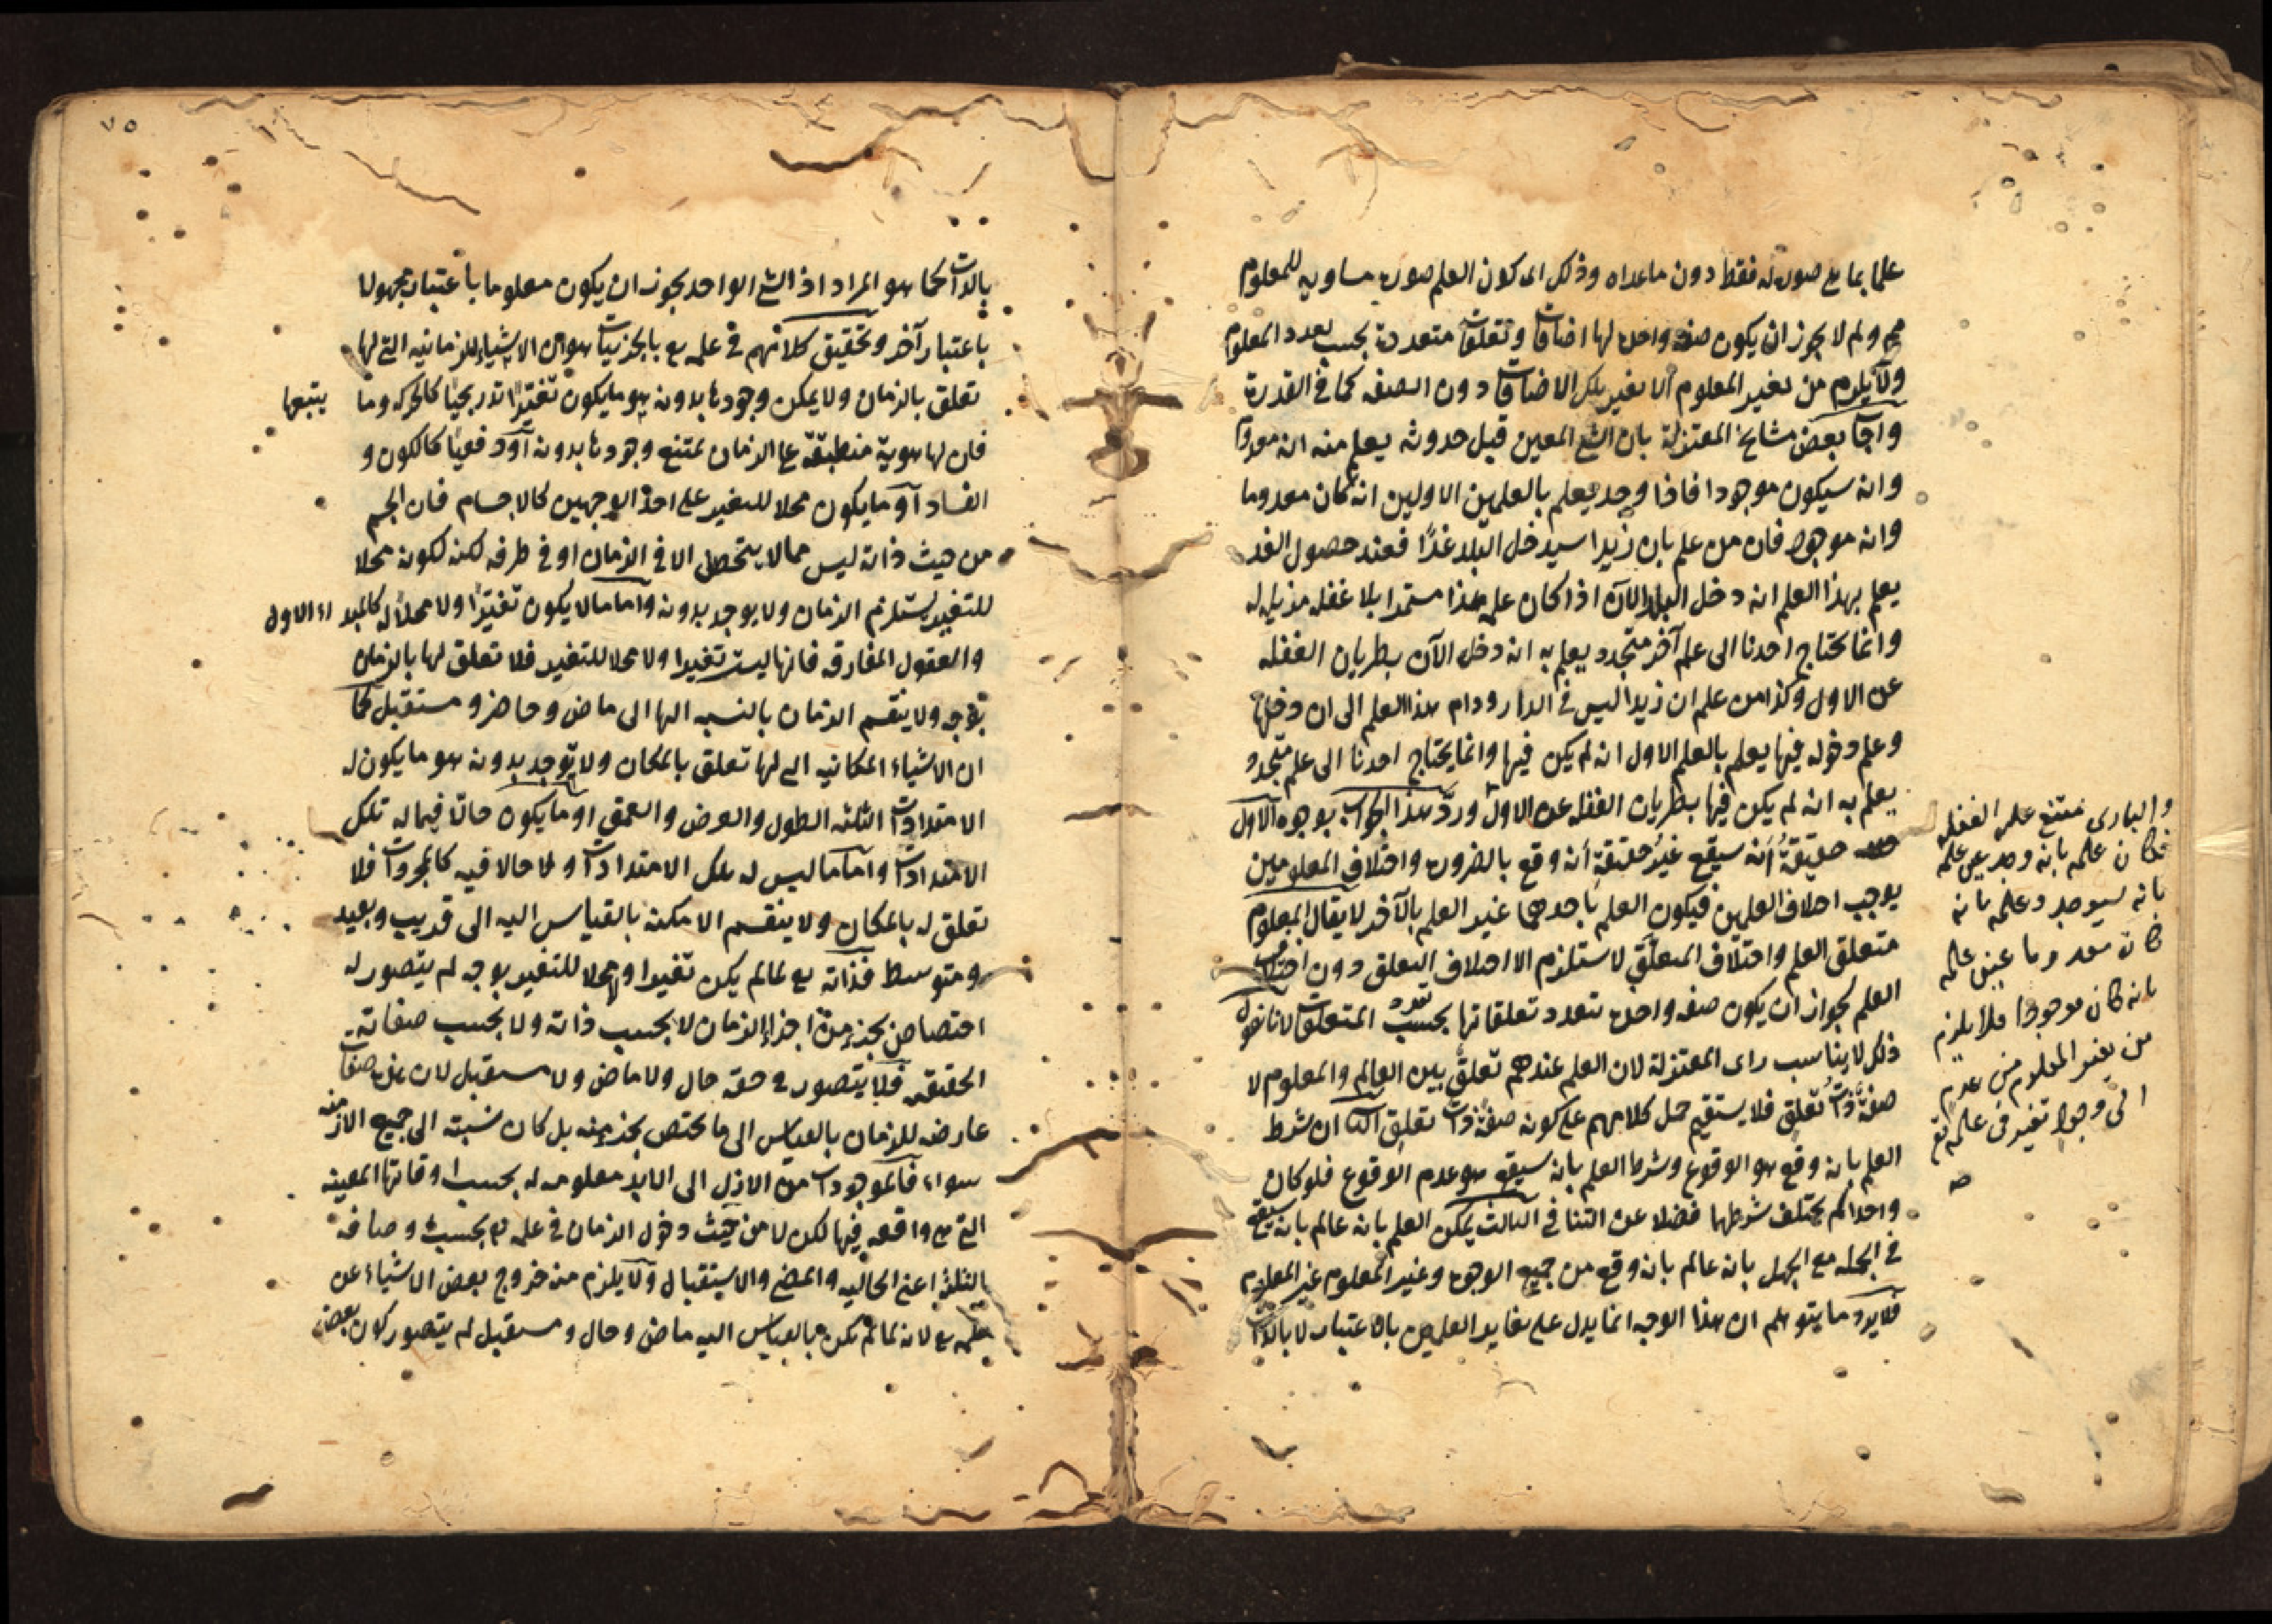 علما بما هى صورة له فقط دون ما عداه وذلك اى كون العلم صورة مساوية للمعلوم
مم ولم لا يجوز ان يكون صفة واحدة لها اضافات وتعلقات متعددة بحسب تعدد المعلوم
ولا يلزم من تغير المعلوم الا تغير تلك الاضافات دون الصفة كما فى القدرة
واجاب بعض مشايخ المعتزلة بان الشئ المعين قبل حدوثه يعلم منه انه معدوم
وانه سيكون موجودا فاذا وجد يعلم بالعلمين الاولين انه كان معدوما
وانه موجود فان من علم بان زيدا سيدخل البلد غدًا فعند حصول الغد
يعلم بهذا العلم انه دخل البلد الآن اذا كان علمه هذا مستمرا بلا غفلة مزيلة له
وانما يحتاج احدنا الى علم آخر متجدد يعلم به انه دخل الآن بطريان الغفلة
عن الاول وكذا من علم ان زيدا ليس فى الدار ودام هذا العلم الى ان دخلها
وعلم دخوله فيها يعلم بالعلم الاول انه لم يكن فيها وانما يحتاج احدنا الى علم متجدد
يعلم به انه لم يكن فيها بطريان الغفلة عن الاول وردّ هذا الجواب بوجوه الاول
حقيقةُ أنه سيقع غيرُ حقيقةِ أنه وقع بالضرورة واختلاف المعلومين
يوجب اختلاف العلمين فيكون العلم باحدهما غير العلم بالآخر لا يقال المعلوم
متعلق العلم واختلاف المتعلَّق لا يستلزم الا اختلاف التعلق دون اختلاف
العلم لجواز ان يكون صفة واحدة تتعدد تعلقاتها بحسب تعدد المتعلقات لانا نقول
ذلك لا يناسب راى المعتزلة لان العلم عندهم تعلقٌ بين العالم والمعلوم لا
صفةٌ ذاتُ تعلقٍ فلا يستقيم حمل كلامهم على كونه صفة ذات تعلق الثانى ان شرط
العلم بانه وقع هو الوقوع وشرط العلم بانه سيقع هو عدم الوقوع فلو كان
واحدا لم يختلف شرطهما فضلا عن التنافى الثالث يمكن العلم بانه عالم بانه سيقع
فى الجملة مع الجهل بانه عالم بانه وقع من جميع الوجوه وغير المعلوم غير المعلوم
فلا يرد ما يتوهم ان هذا الوجه انما يدل على تغاير العلمين بالاعتبار لا بالذات
والبارى ممتنع عليه الغفلة
فكان علمه بانه وجد عين علمه
بانه سيوجد وعلمه بانه
كان معدوما عين علمه
بانه كان موجودا فلا يلزم
من تغير المعلوم من عدم
الى وجود تغير فى علمه تع
صح
٧٥
بالذات كما هو المراد اذ الشئ الواحد يجوز ان يكون معلوما باعتبار مجهولا
باعتبار آخر وتحقيق كلامهم فى علمه تع بالجزئيات هو ان الاشياء الزمانية التى لها
تعلق بالزمان ولا يمكن وجودها بدونه هو ما يكون تغيّرًا تدريجيًا كالحركة وما يتبعها
فان لها هوية منطبقة على الزمان يمتنع وجودها بدونه أو دفعيًا كالكون و
الفساد أو ما يكون محلا للتغير على احد الوجهين كالاجسام فان الجسم
من حيث ذاته ليس مما لا يتحصل الا فى الزمان او فى طرفه لكنه لكونه محلا
للتغير يستلزم الزمان ولا يوجد بدونه واما ما لا يكون تغيّرًا ولا محلًا له كالمبداء الاول
والعقول المفارقة فانها ليست تغيرا ولا محلا للتغير فلا تعلق لها بالزمان
بوجه ولا ينقسم الزمان بالنسبة اليها الى ماض وحاضر ومستقبل كما
ان الاشياء المكانية التى لها تعلق بالمكان ولا توجد بدونه هو ما يكون له
الامتدادات الثلثة الطول والعرض والعمق او ما يكون حالّا فيما له تلك
الامتدادات واما ما ليس له تلك الامتدادات ولا حالا فيه كالمجردات فلا
تعلق له بالمكان ولا ينقسم الامكنة بالقياس اليه الى قريب وبعيد
ومتوسط فذاته تع لما لم يكن تغيرا ولا محلا للتغير بوجه لم يتصور له
اختصاص بجزء من اجزاء الزمان لا بحسب ذاته ولا بحسب صفاته
الحقيقية فلا يتصور فى حقه حال ولا ماض ولا مستقبل لان هذه صفات
عارضة للزمان بالقياس الى ما يختص بجزء منه بل كان نسبته الى جميع الازمنة
سواء فالموجودات من الازل الى الابد معلومة له بحسب اوقاتها المعينة
التى هى واقعة فيها لكن لا من حيث دخول الزمان فى علمه تع بحسب اوصافه
الثلثة اعنى الحالية والمضى والاستقبال ولا يلزم منه خروج بعض الاشياء عن
علمه تع لانه لما لم يكن بالقياس اليه ماض وحال ومستقبل لم يتصور كون بعض